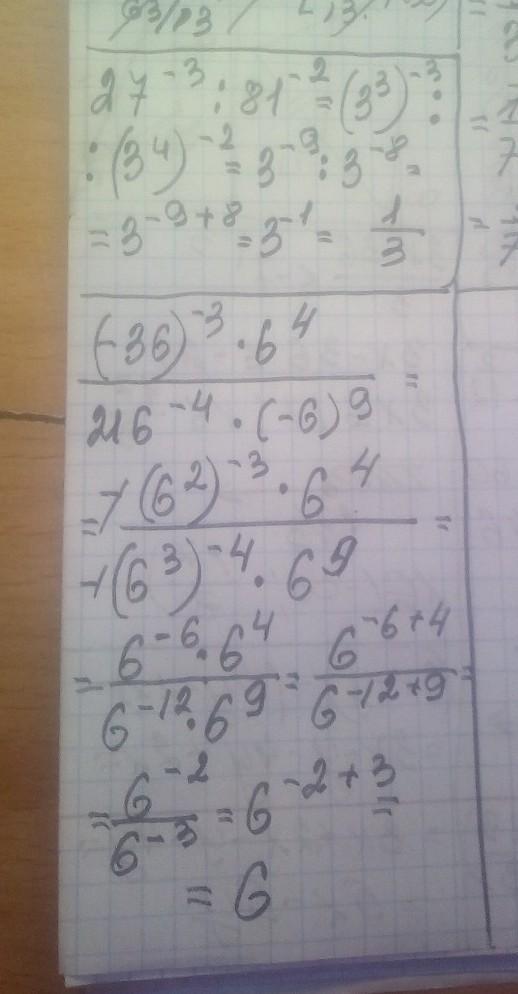 27⁻³ : 81⁻² = (3³)⁻³ :
: (3⁴)⁻² = 3⁻⁹ : 3⁻⁸ =
= 3⁻⁹⁺⁸ = 3⁻¹ = 1/3
(-36)⁻³ · 6⁴
216⁻⁴ · (-6)⁹ =
= -(6²)⁻³ · 6⁴
-(6³)⁻⁴ · 6⁹ =
= 6⁻⁶ · 6⁴ / 6⁻¹² · 6⁹ = 6⁻⁶⁺⁴ / 6⁻¹²⁺⁹ =
= 6⁻² / 6⁻³ = 6⁻²⁺³ =
= 6